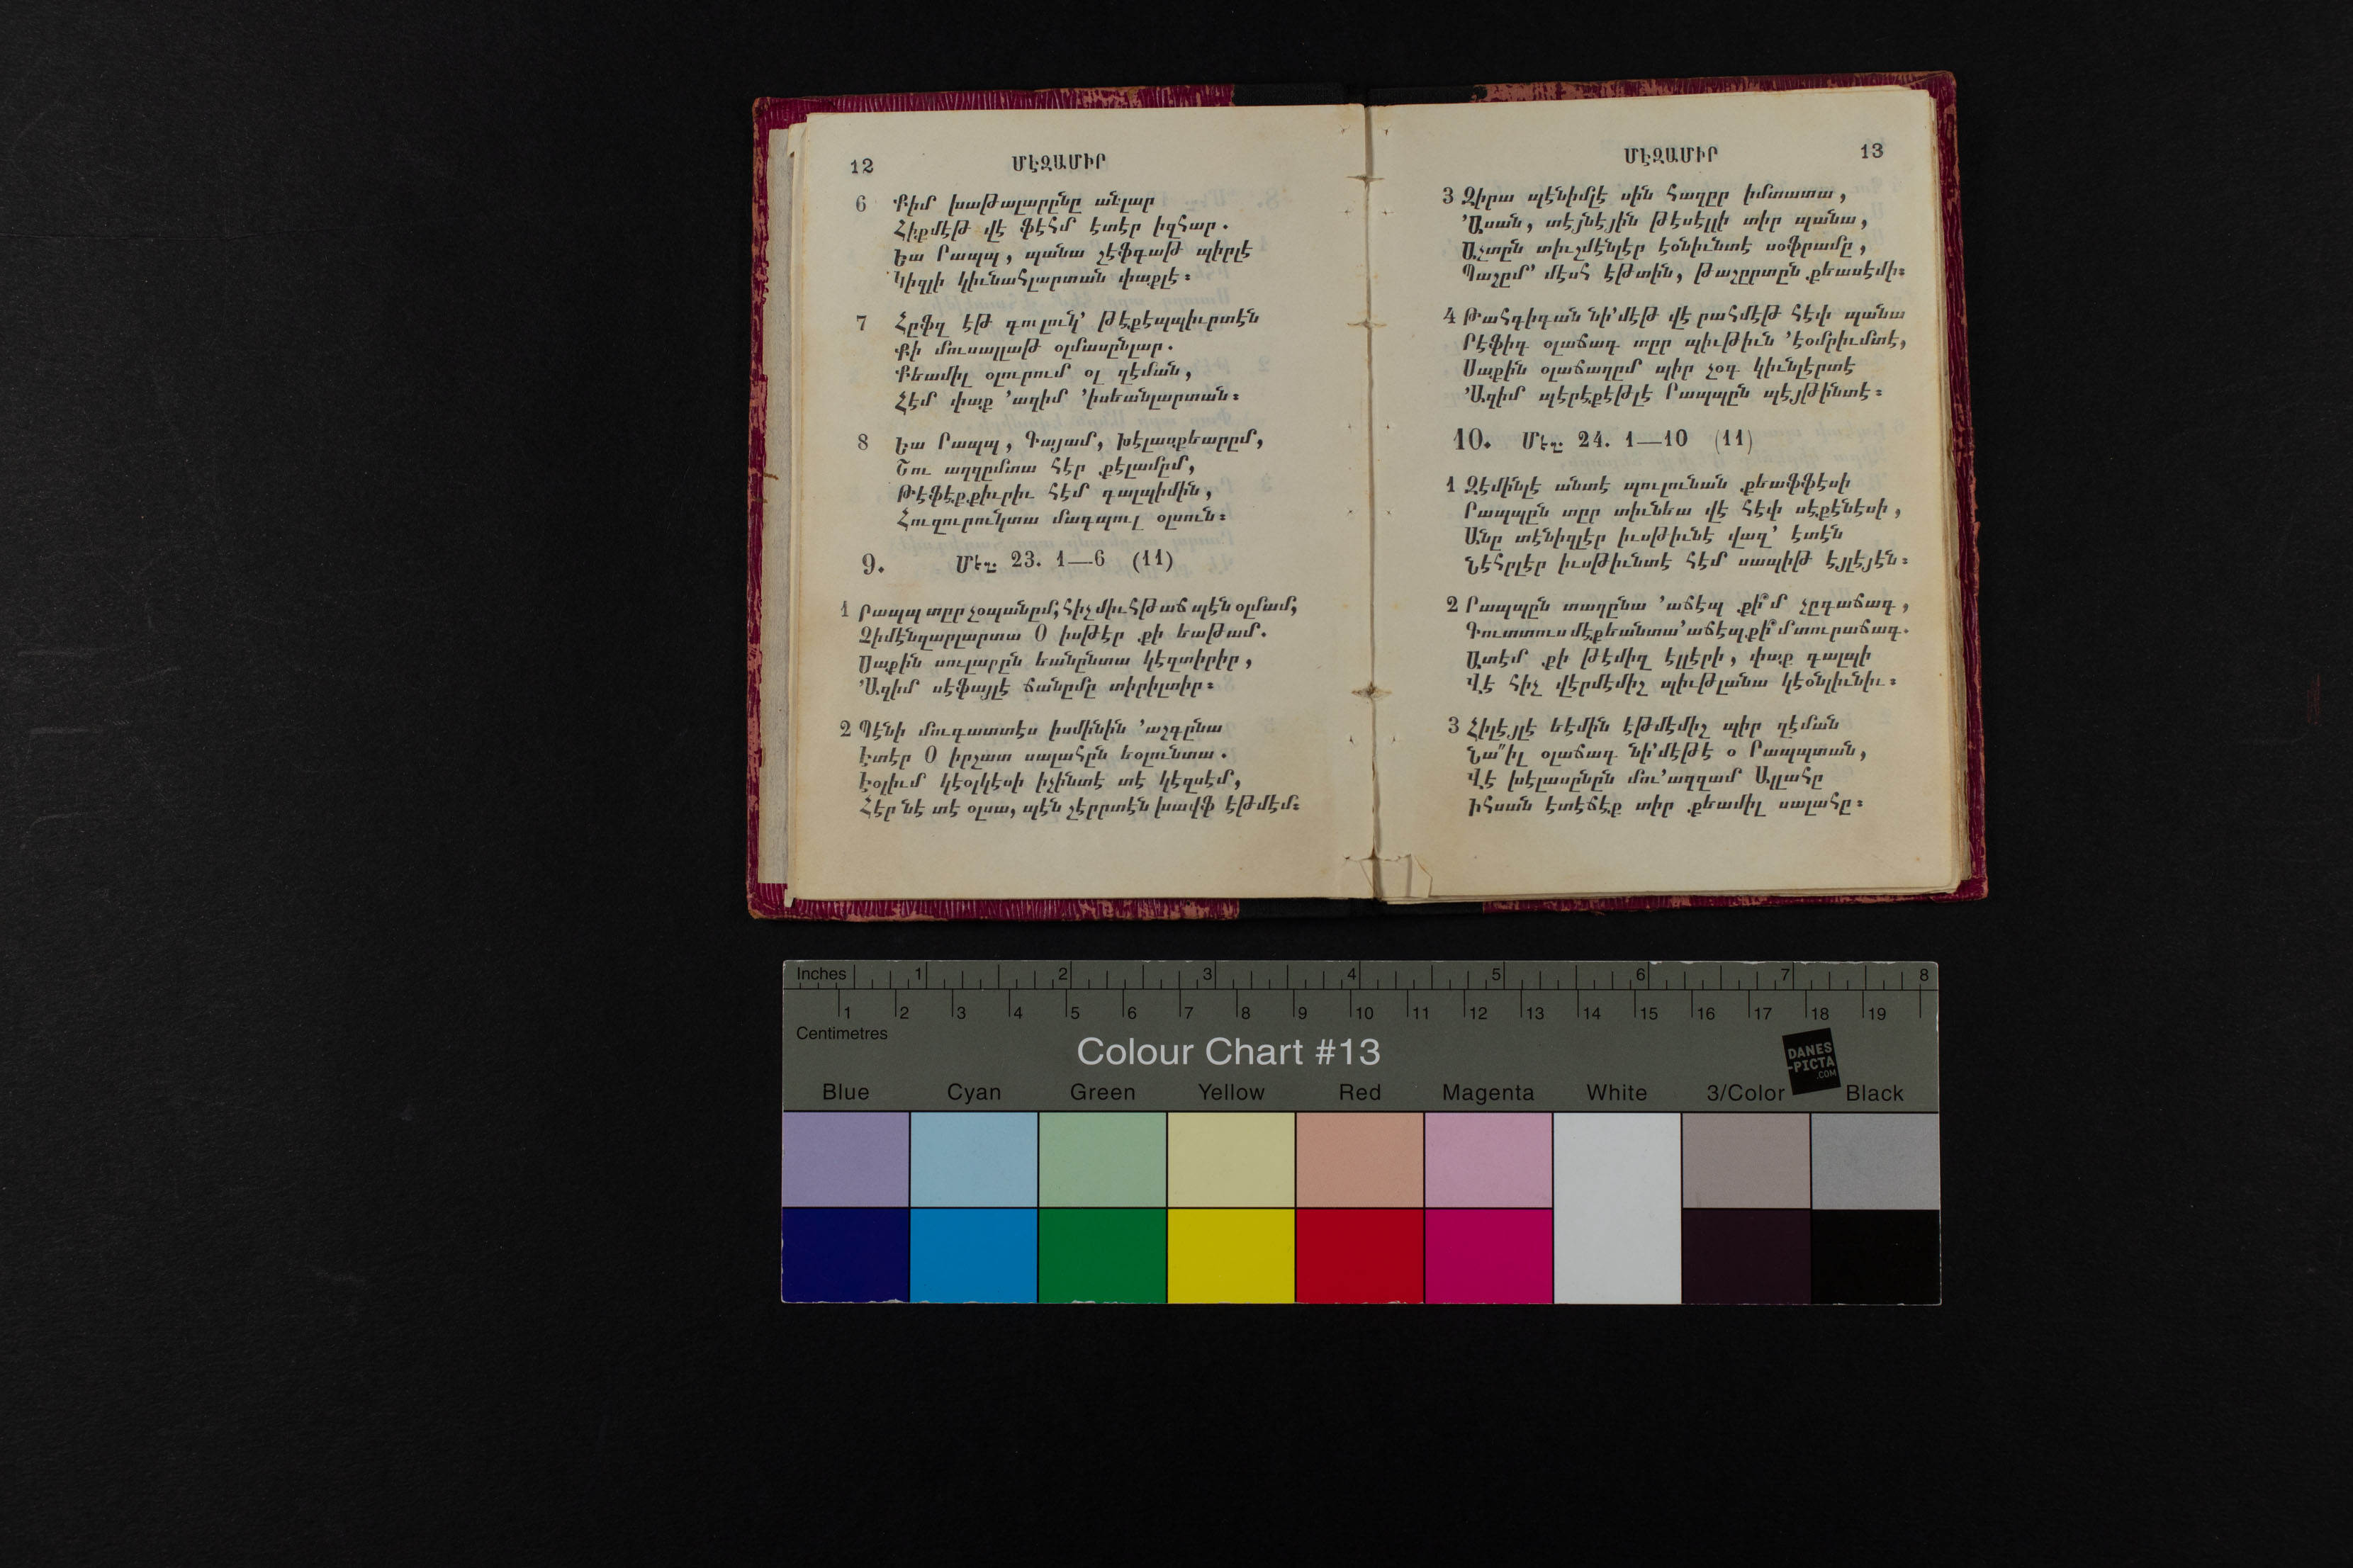 12 ՄԷԶԱՄԻՐ
6 Քիմ խաթալարընը անլար
Հիքմէթ վէ ֆէհմ էտէր իզհար.
Եա Րապպ, պանա շէֆգաթ պիրլէ
Կիզլի կիւնահլարտան փաքլէ։
7 Հըֆզ էթ գուլունկ՚ թէքէպպիւրտէն
Քի մուսալլաթ օլմասընլար.
Քեամիլ օլուրում օլ զէման,
Հէմ փաք ՚ազիմ ՚իսեանլարտան։
8 Եա Րապպ, Գայամ, խէլասքեարըմ,
Շու աղզըմտա հէր քէլամըմ,
Թէֆէքքիւրիւ հէմ գալպիմին,
Հուզուրունկտա մագպուլ օլսուն։
9. Մեզ. 23. 1—6 (11)
1 Րապպ տըր չօպանըմ; հիչ միւհթաճ պէն օլմամ,
Չիմէնզարլարտա Օ իսթէր քի եաթամ.
Սաքին սուլարըն եանընտա կէզտիրիր,
՚Ազիմ սէֆայլէ ճանըմը տիրիլտիր։
2 Պէնի մուգատտէս իսմինին ՚աշգընա
Էտէր Օ իրշատ սալահըն եօլունտա.
Էօլիւմ կէօլկէսի իչինտէ տէ կէզսէմ,
Հէր նէ տէ օլսա, պէն շէրրտէն խավֆ էթմէմ։
ՄԷԶԱՄԻՐ 13
3 Զիրա պէնիմլէ սին հազըր իմտատա,
՚Ասան, տէյնէյին թէսէլլի տիր պանա,
Աչտըն տիւշմէնլէր էօնիւնտէ սօֆրամը,
Պաշըմ՚ մէսհ էթտին, թաշըրտըն քեասէմի։
4 Թահգիգան նի՚մէթ վէ րահմէթ հէփ պանա
Րէֆիգ օլաճագ տըր պիւթիւն ՚էօմրիւմտէ,
Սաքին օլաճաղըմ պիր չօգ կիւնլէրտէ
՚Ազիմ պէրէքէթլէ Րապպըն պէյթինտէ։
10. Մեզ. 24. 1—10 (11)
1 Զէմինլէ անտէ պուլունան քեաֆֆէսի
Րապպըն տըր տիւնեա վէ հէփ սէքէնէսի,
Անը տէնիզլէր իւսթիւնէ վազ՚ էտէն
Նէհրլէր իւսթիւնտէ հէմ սապիթ էյլէյէն։
2 Րապպըն տաղընա ՚աճէպ քի՞մ չըգաճագ,
Գուտտուս մէքեանտա ՚աճէպ քի՞մ տուրաճագ.
Ատէմ քի թէմիզ էլլէրի, փաք գալպի
Վէ հիչ վէրմէմիշ պիւթլանա կէօնլիւնիւ։
3 Հիլէյլէ եէմին էթմէմիշ պիր զէման
Նա՛՛իլ օլաճագ նի՚մէթէ օ Րապպտան,
Վէ խէլասընըն մու՚ազզամ Ալլահը
Իհսան էտէճէք տիր քեամիլ սալահը։
Inches 1 2 3 4 5 6 7 8
1 2 3 4 5 6 7 8 9 10 11 12 13 14 15 16 17 18 19
Centimetres
Colour Chart #13
DANES
-PICTA
.COM
Blue Cyan Green Yellow Red Magenta White 3/Color Black